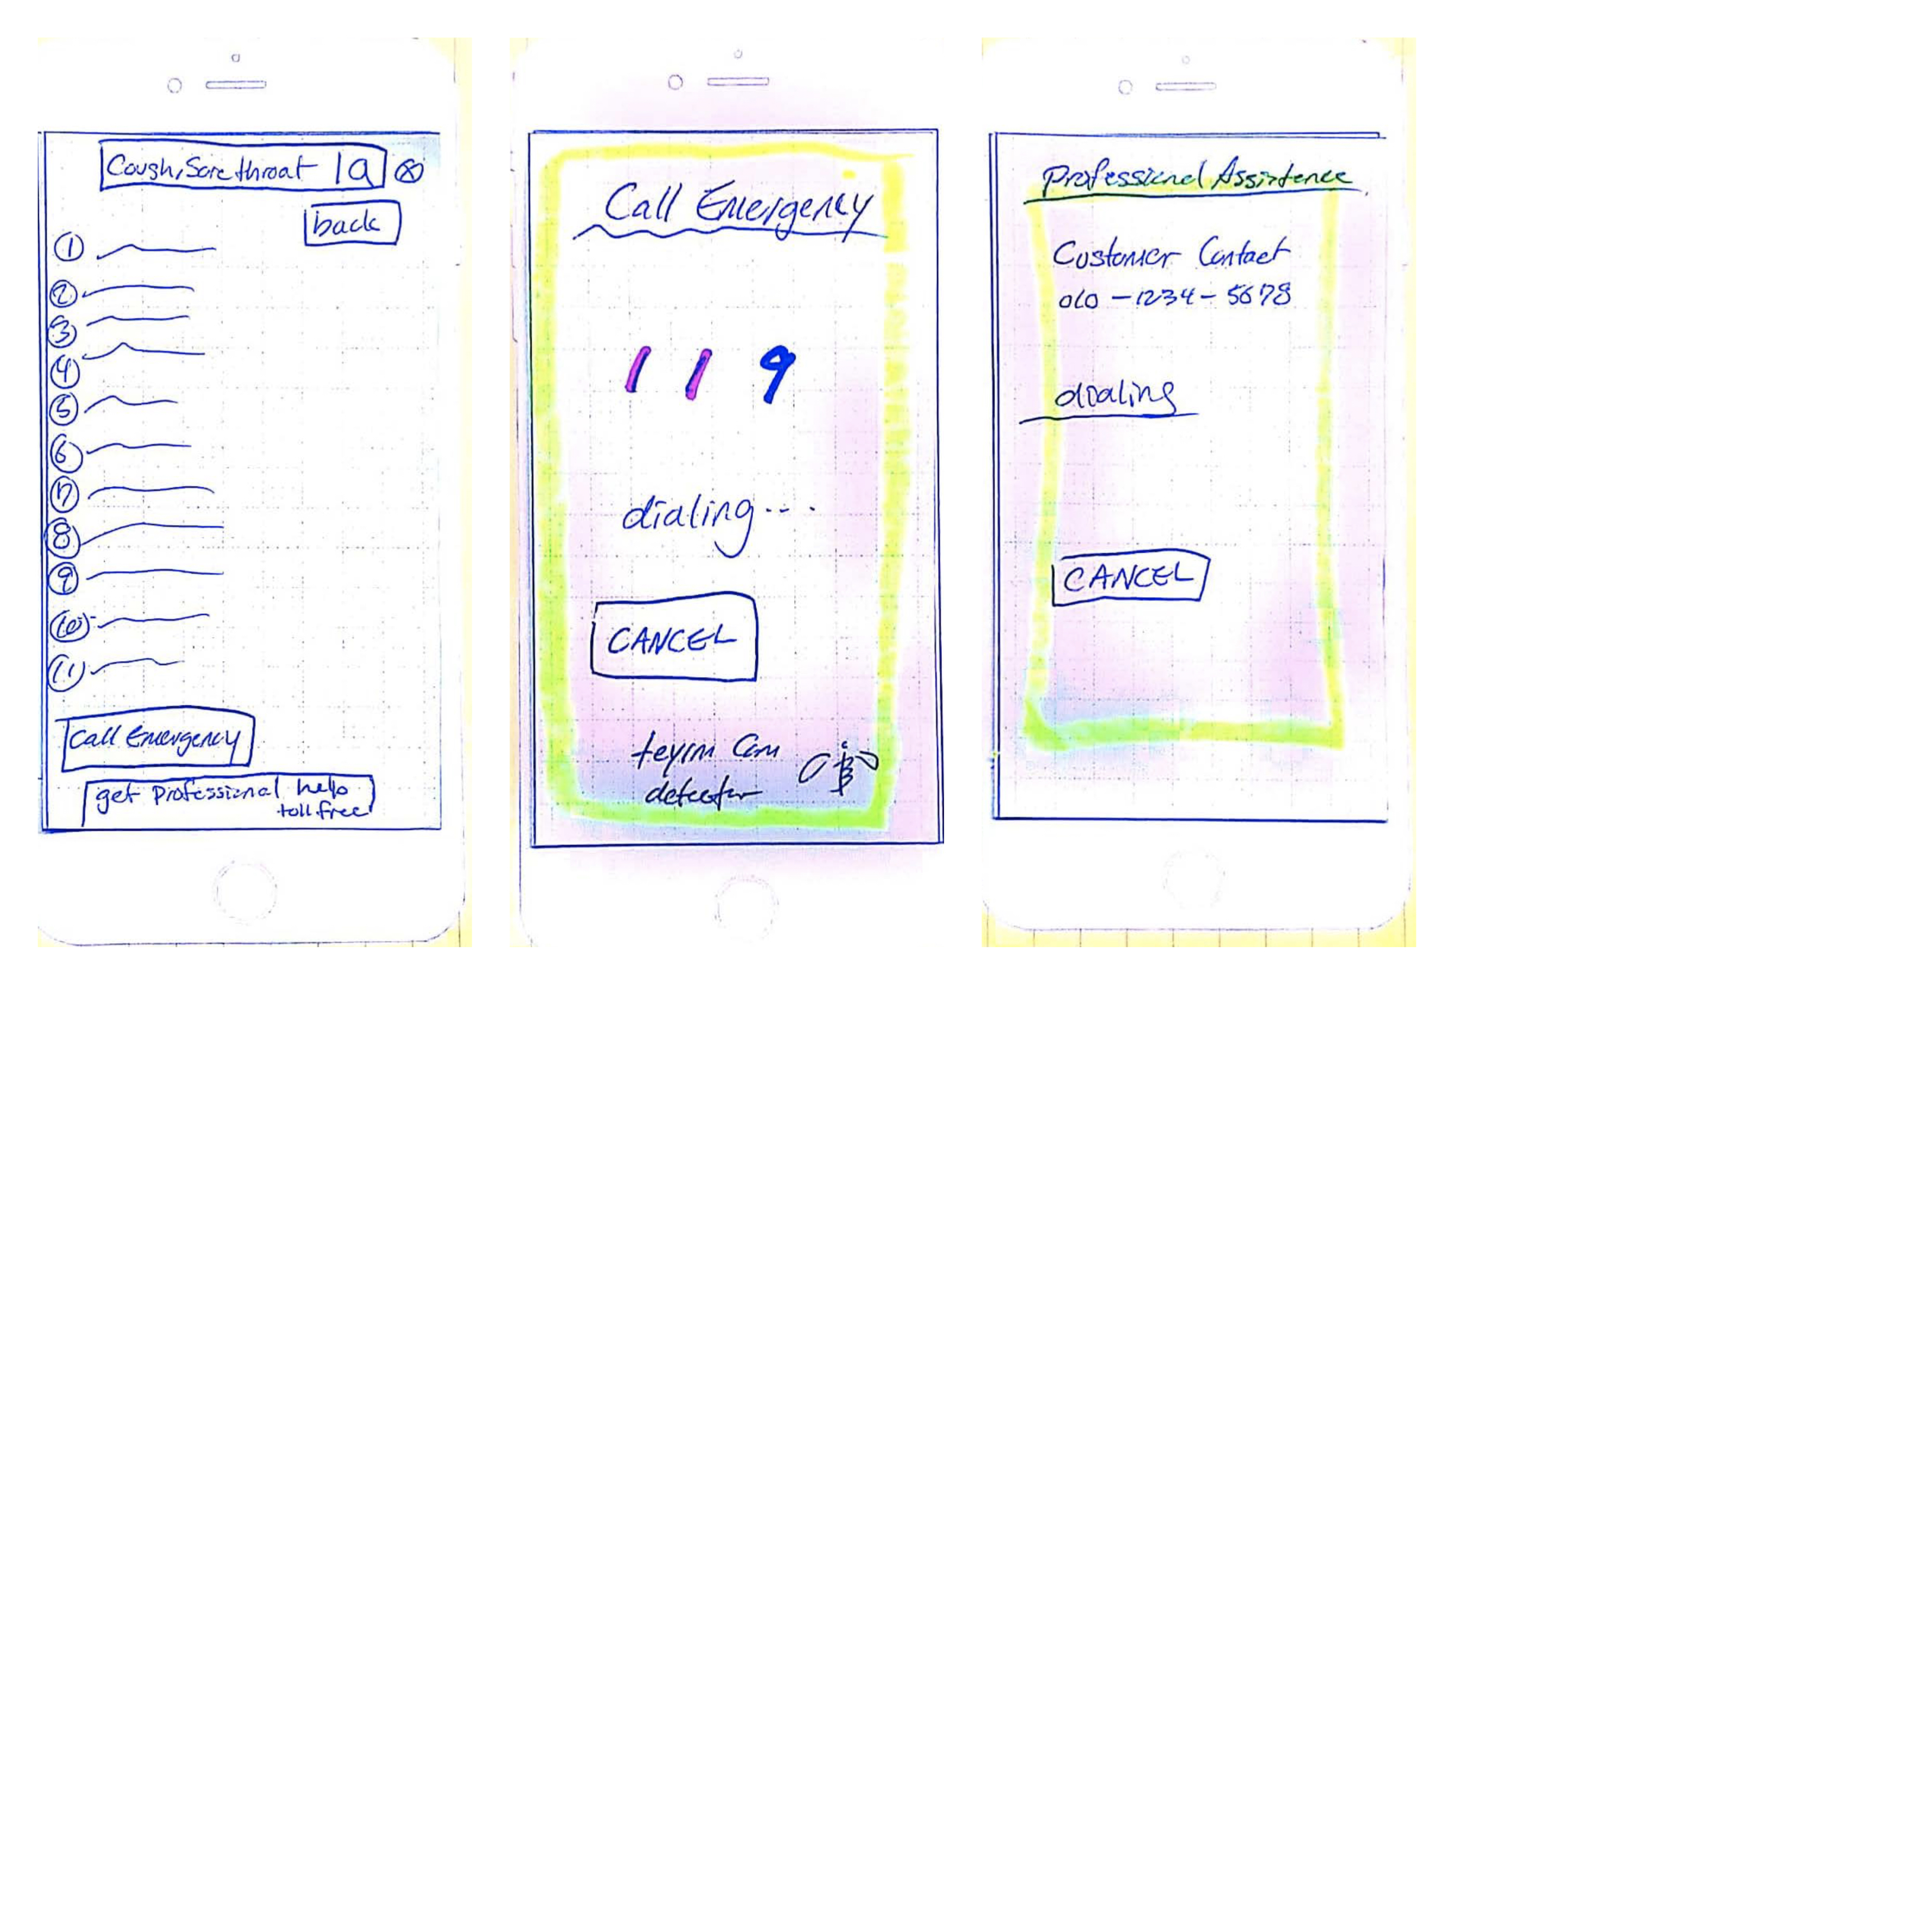 Cough, Sore throat
back
1
2
3
4
5
6
7
8
9
10
11
Call Emergency
get Professional help
toll.free
Call Emergency
119
dialing...
CANCEL
detector
Professional Assistence
Customer Contact
010-1234-5678
dialing
CANCEL